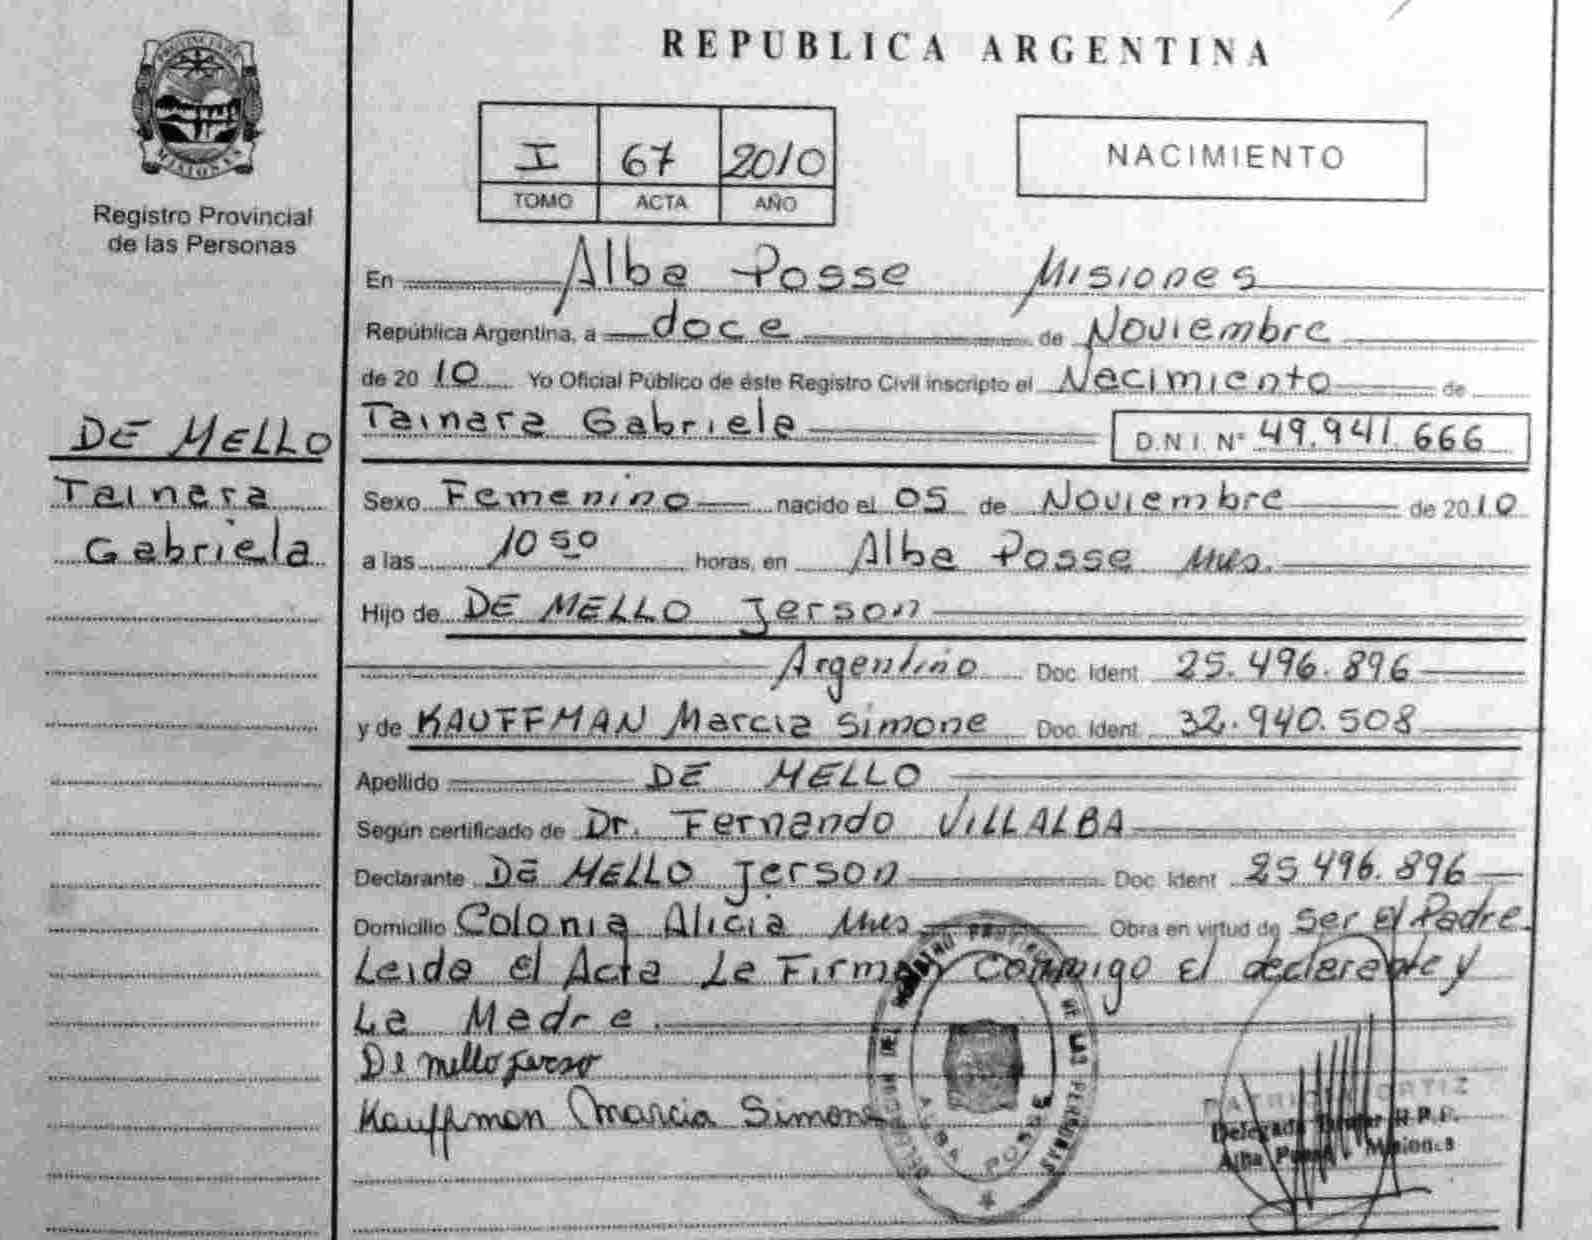 REPUBLICA ARGENTINA
PROVINCIA DE
MISIONES
Registro Provincial
de las Personas
I 67 2010
TOMO ACTA AÑO
NACIMIENTO
En Alba Posse Misiones
República Argentina, a doce de Noviembre
de 2010 Yo Oficial Público de éste Registro Civil inscripto el Nacimiento de
Tainara Gabriela D.N.I. Nº 49.941.666
DE MELLO
Tainara
Gabriela
Sexo Femenino nacido el 05 de Noviembre de 2010
a las 10 50 horas, en Alba Posse Mnes.
Hijo de DE MELLO Jerson
Argentino Doc. Ident. 25.496.896
y de KAUFFMAN Marcia Simone Doc. Ident. 32.940.508
Apellido DE MELLO
Según certificado de Dr. Fernando VILLALBA
Declarante DE MELLO Jerson Doc. Ident. 25.496.896
Domicilio Colonia Alicia Mnes Obra en virtud de Ser El Padre
Leida el Acta La Firman Conmigo El declarante y
La Madre.
De mello Jerso
Kauffman Marcia Simone
ALBA POSSE
ORTIZ
Delegada Titular R.P.P.
Alba Posse - Misiones